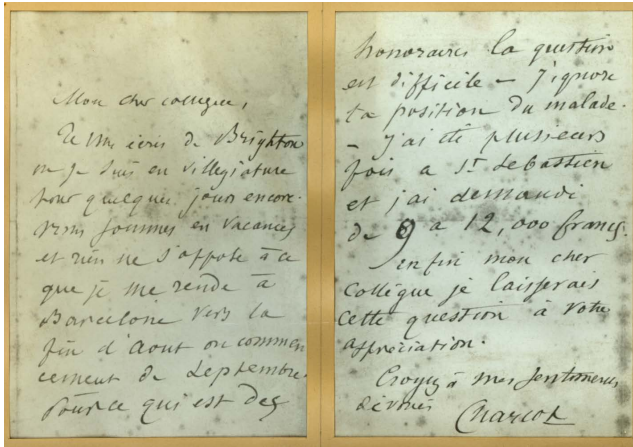 Mon cher collegue,
Je vous écris de Brighton
ou je suis en villegiature
pour quelques jours encore.
nous sommes en vacances
et rien ne s'oppose à ce
que je me rende à
Barcelone vers la
fin d'Aout ou commen
cement de Septembre.
Pour ce qui est des
honoraires la question
est difficile – J'ignore
la position du malade.
– J'ai été plusieurs
fois a St Sebastien
et j'ai demandé
de 9 a 12,000 francs.
enfin mon cher
Collègue je laisserais
cette question à votre
appréciation.
Croyez à mes sentiments
dévoués Charcot